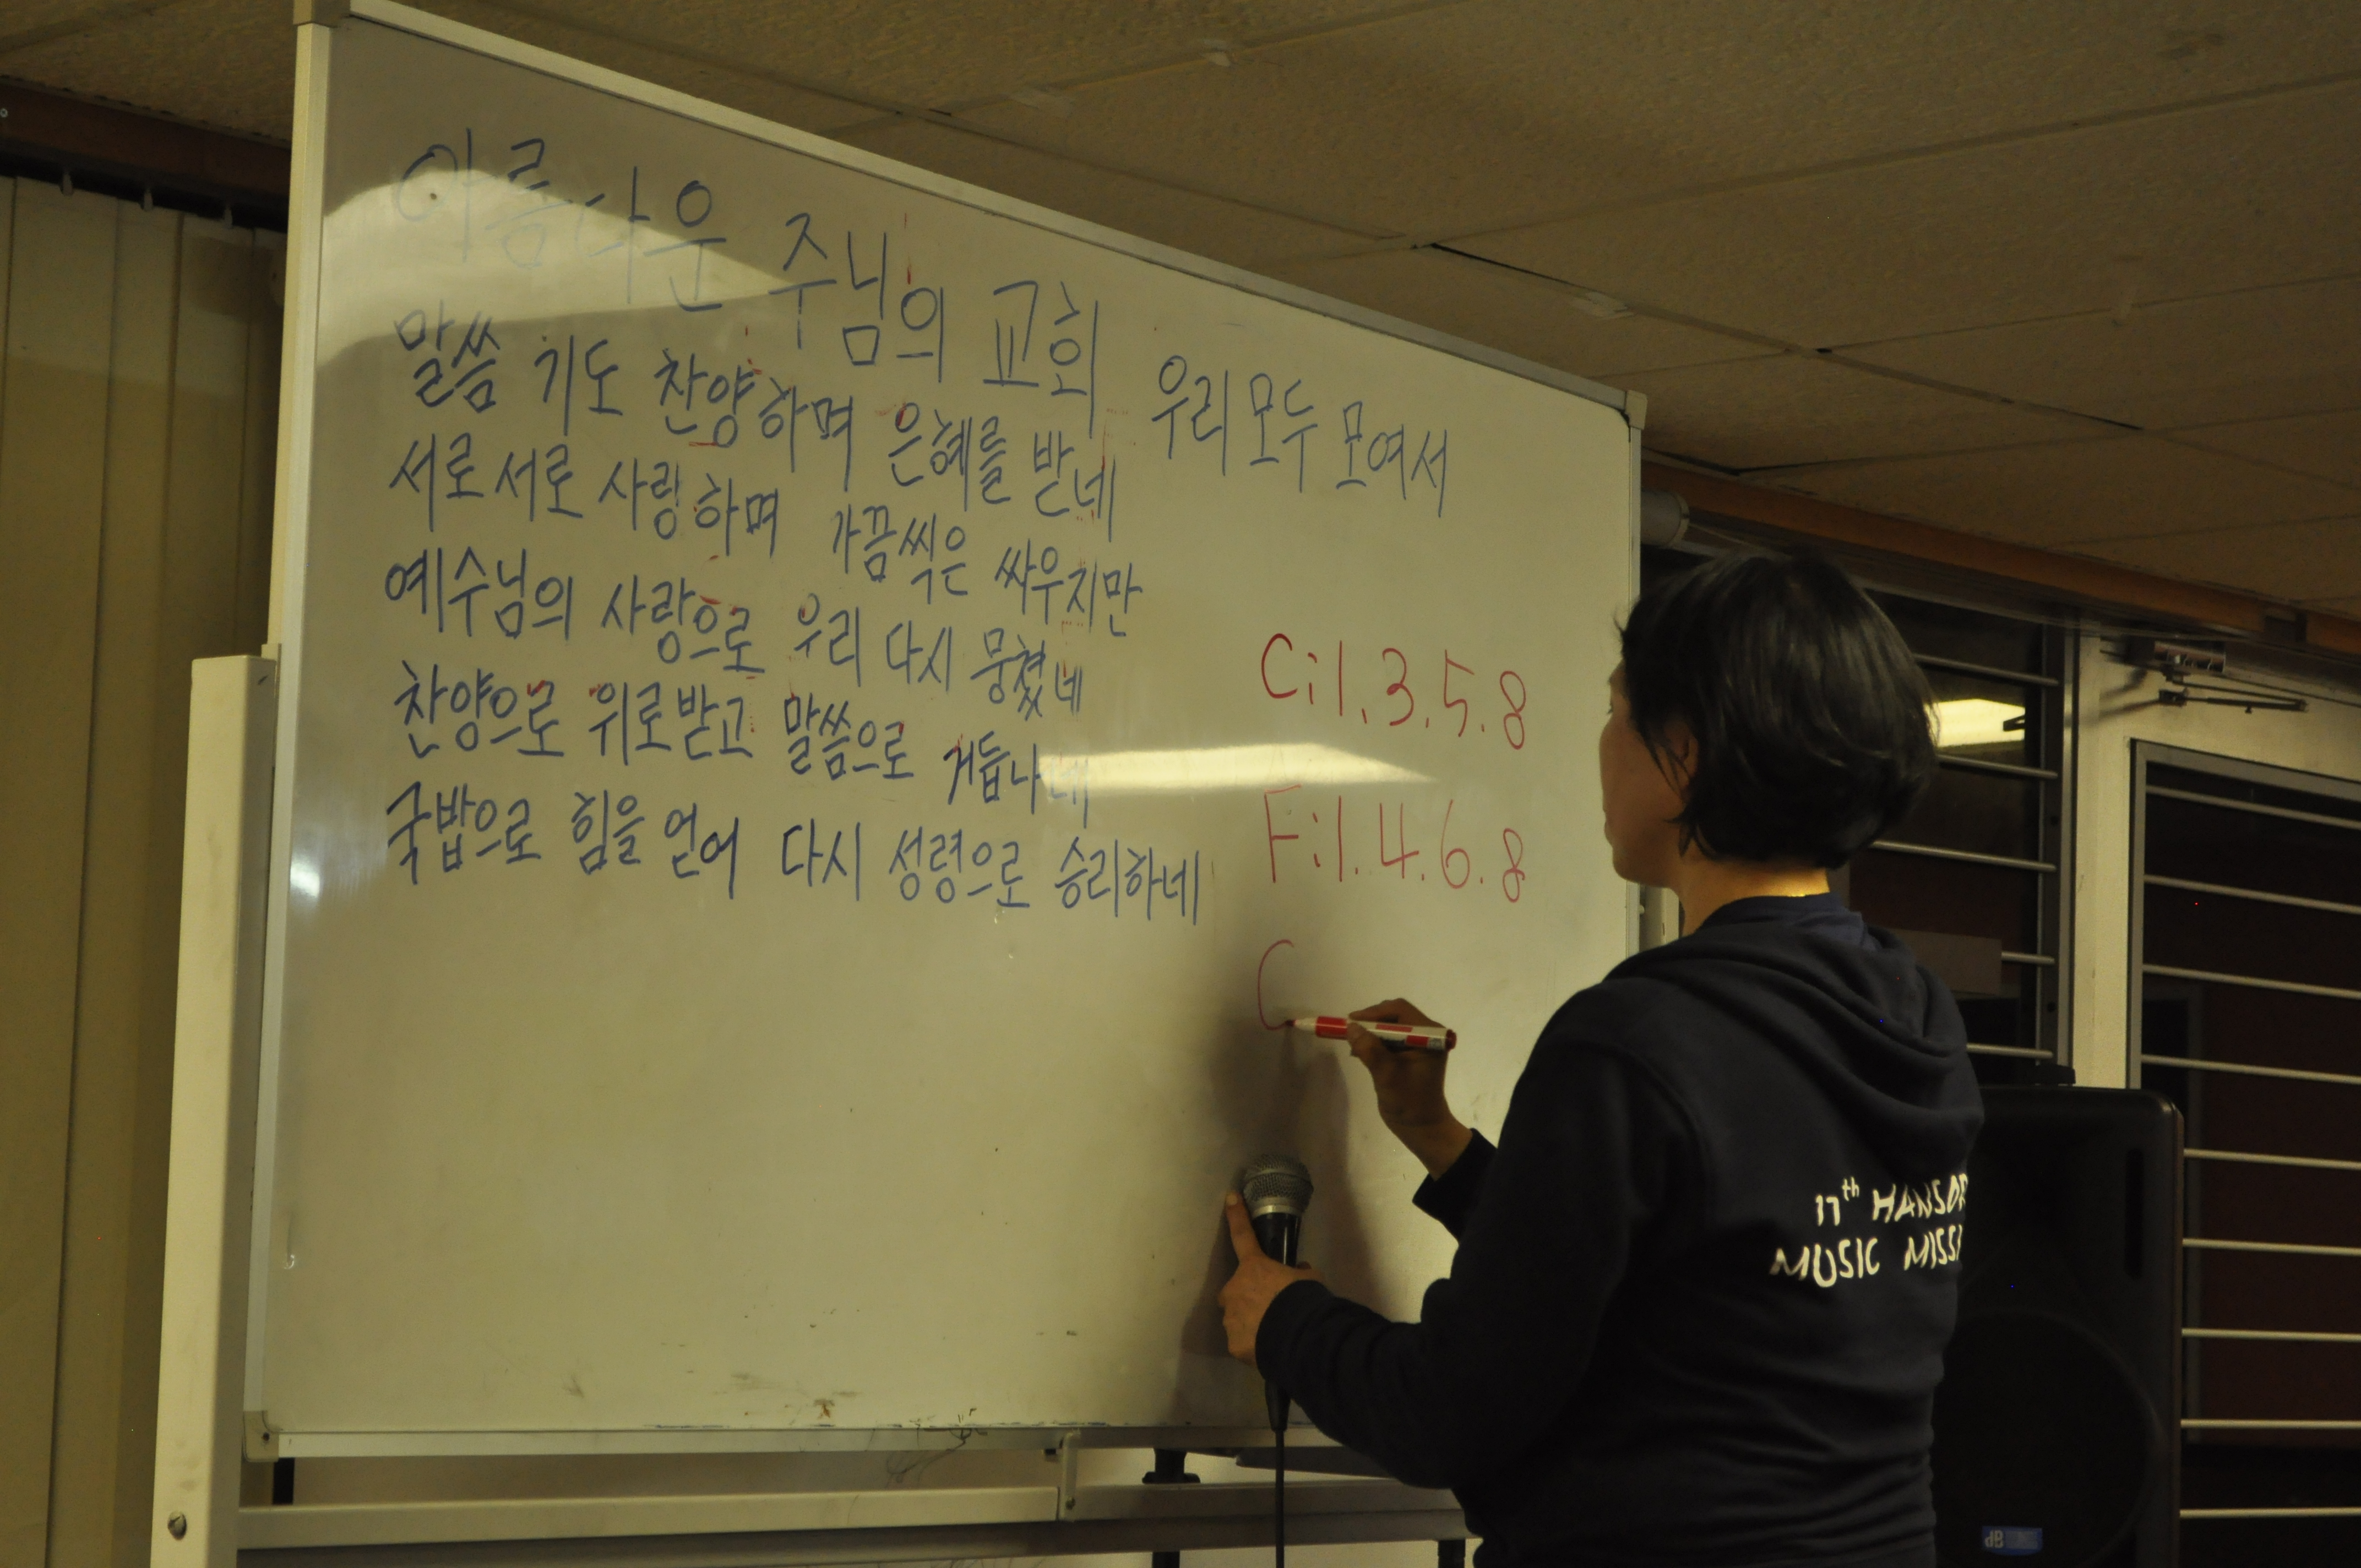 아름다운 주님의 교회 우리 모두 모여서
말씀 기도 찬양하며 은혜를 받네
서로 서로 사랑하며 가끔씩은 싸우지만
예수님의 사랑으로 우리 다시 뭉쳤네
찬양으로 위로받고 말씀으로 거듭나네
국밥으로 힘을 얻어 다시 성령으로 승리하네
C:1.3.5.8
F:1.4.6.8
C
17th HANSOR
MUSIC MISSI
dB